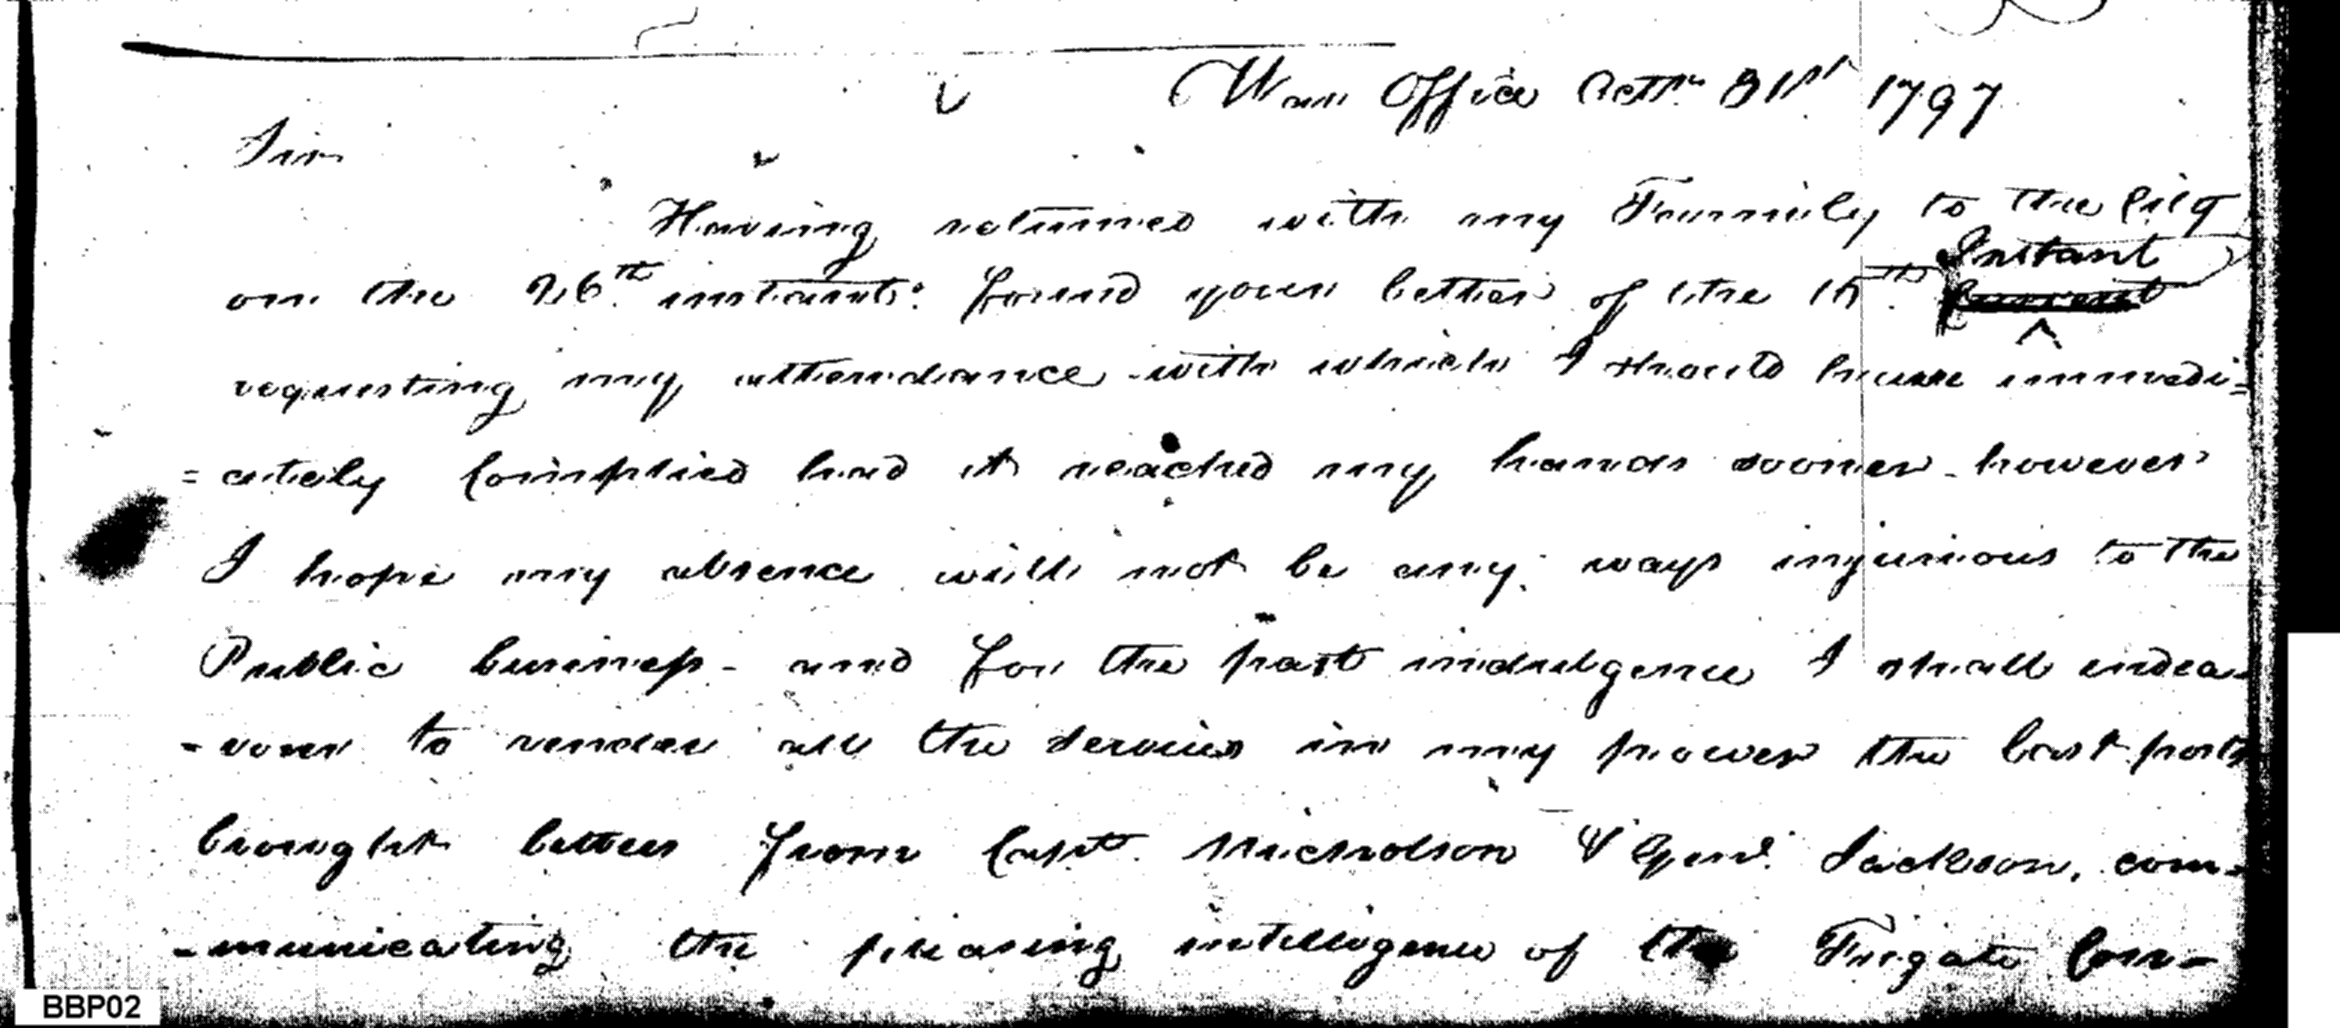 War Office Octr. 31st 1797
Sir
Having returned with my Family to the City
on the 26th instant: found your letter of the 15th Instant
requesting my attendance - with which I should have immedi=
=ately Complied had it reached my hands sooner - however
I hope my absence will not be any ways injurious to the
Public business - and for the past indulgence I shall endea-
-vour to render all the services in my power the last posts
brought letters from Capt. Nicholson & Genl. Jackson, com=
-municating the pleasing intelligence of the Frigate Con-
BBP02